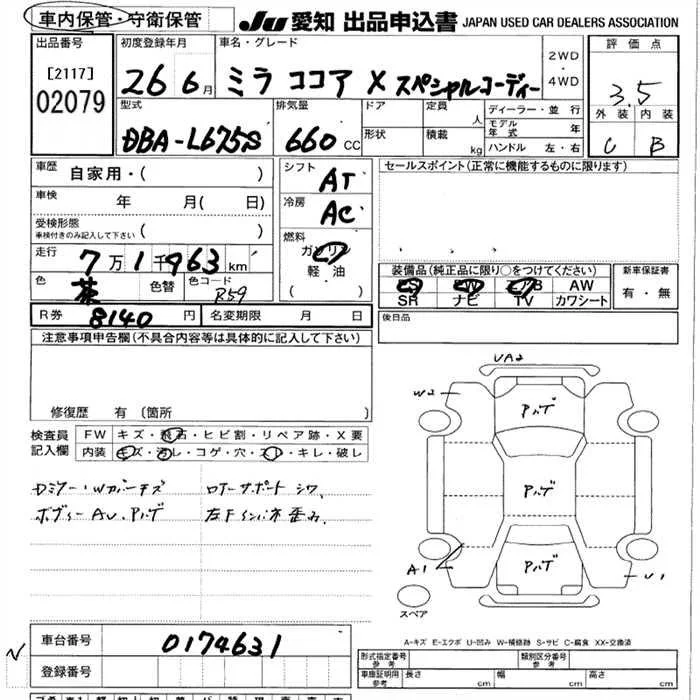 車内保管・守衛保管 JU 愛知 出品申込書 JAPAN USED CAR DEALERS ASSOCIATION
出品番号 [2117] 02079
初度登録年月 26 6月
車名・グレード ミラ ココア X スペシャルコーディー
2WD・4WD
評価点 3.5
外装 内装
C B
型式 DBA-L675S
排気量 660 CC
ドア 形状
定員 人 積載 kg
ディーラー・並行
モデル年式 年
ハンドル 左・右
車歴 自家用・( )
車検 年 月( 日)
受検形態 車検付きのみ記入して下さい ( )
走行 7万1千963km
色 茶 色替 色コード R59
シフト AT
冷房 AC
燃料 ガソリン 軽油 ( )
セールスポイント(正常に機能するものに限ります)
装備品(純正品に限り○をつけてください)
PS PW エアB AW
SR ナビ TV カワシート
新車保証書 有・無
R券 8140円 名変期限 月 日
後日品
注意事項申告欄(不具合内容等は具体的に記入して下さい)
修復歴 有(箇所 )
検査員記入欄
FW キズ・飛石・ヒビ割・リペア跡・X要
内装 キズ・汚レ・コゲ・穴・スレ・キレ・破レ
Dミラー・Wカバーキズ ロアーサポート シワ
ボディー AU、Pハゲ 左Fインパネ歪み、
UA2
W2
Pハゲ
Pハゲ
Pハゲ
A1
U1
スペア
A-キズ E-エクボ U-凹み W-補修跡 S-サビ C-腐食 XX-交換済
車台番号 0174631
登録番号
型式指定番号 参考 類別区分番号 参考
車庫証明用 参考 長さ cm 幅 cm 高さ cm